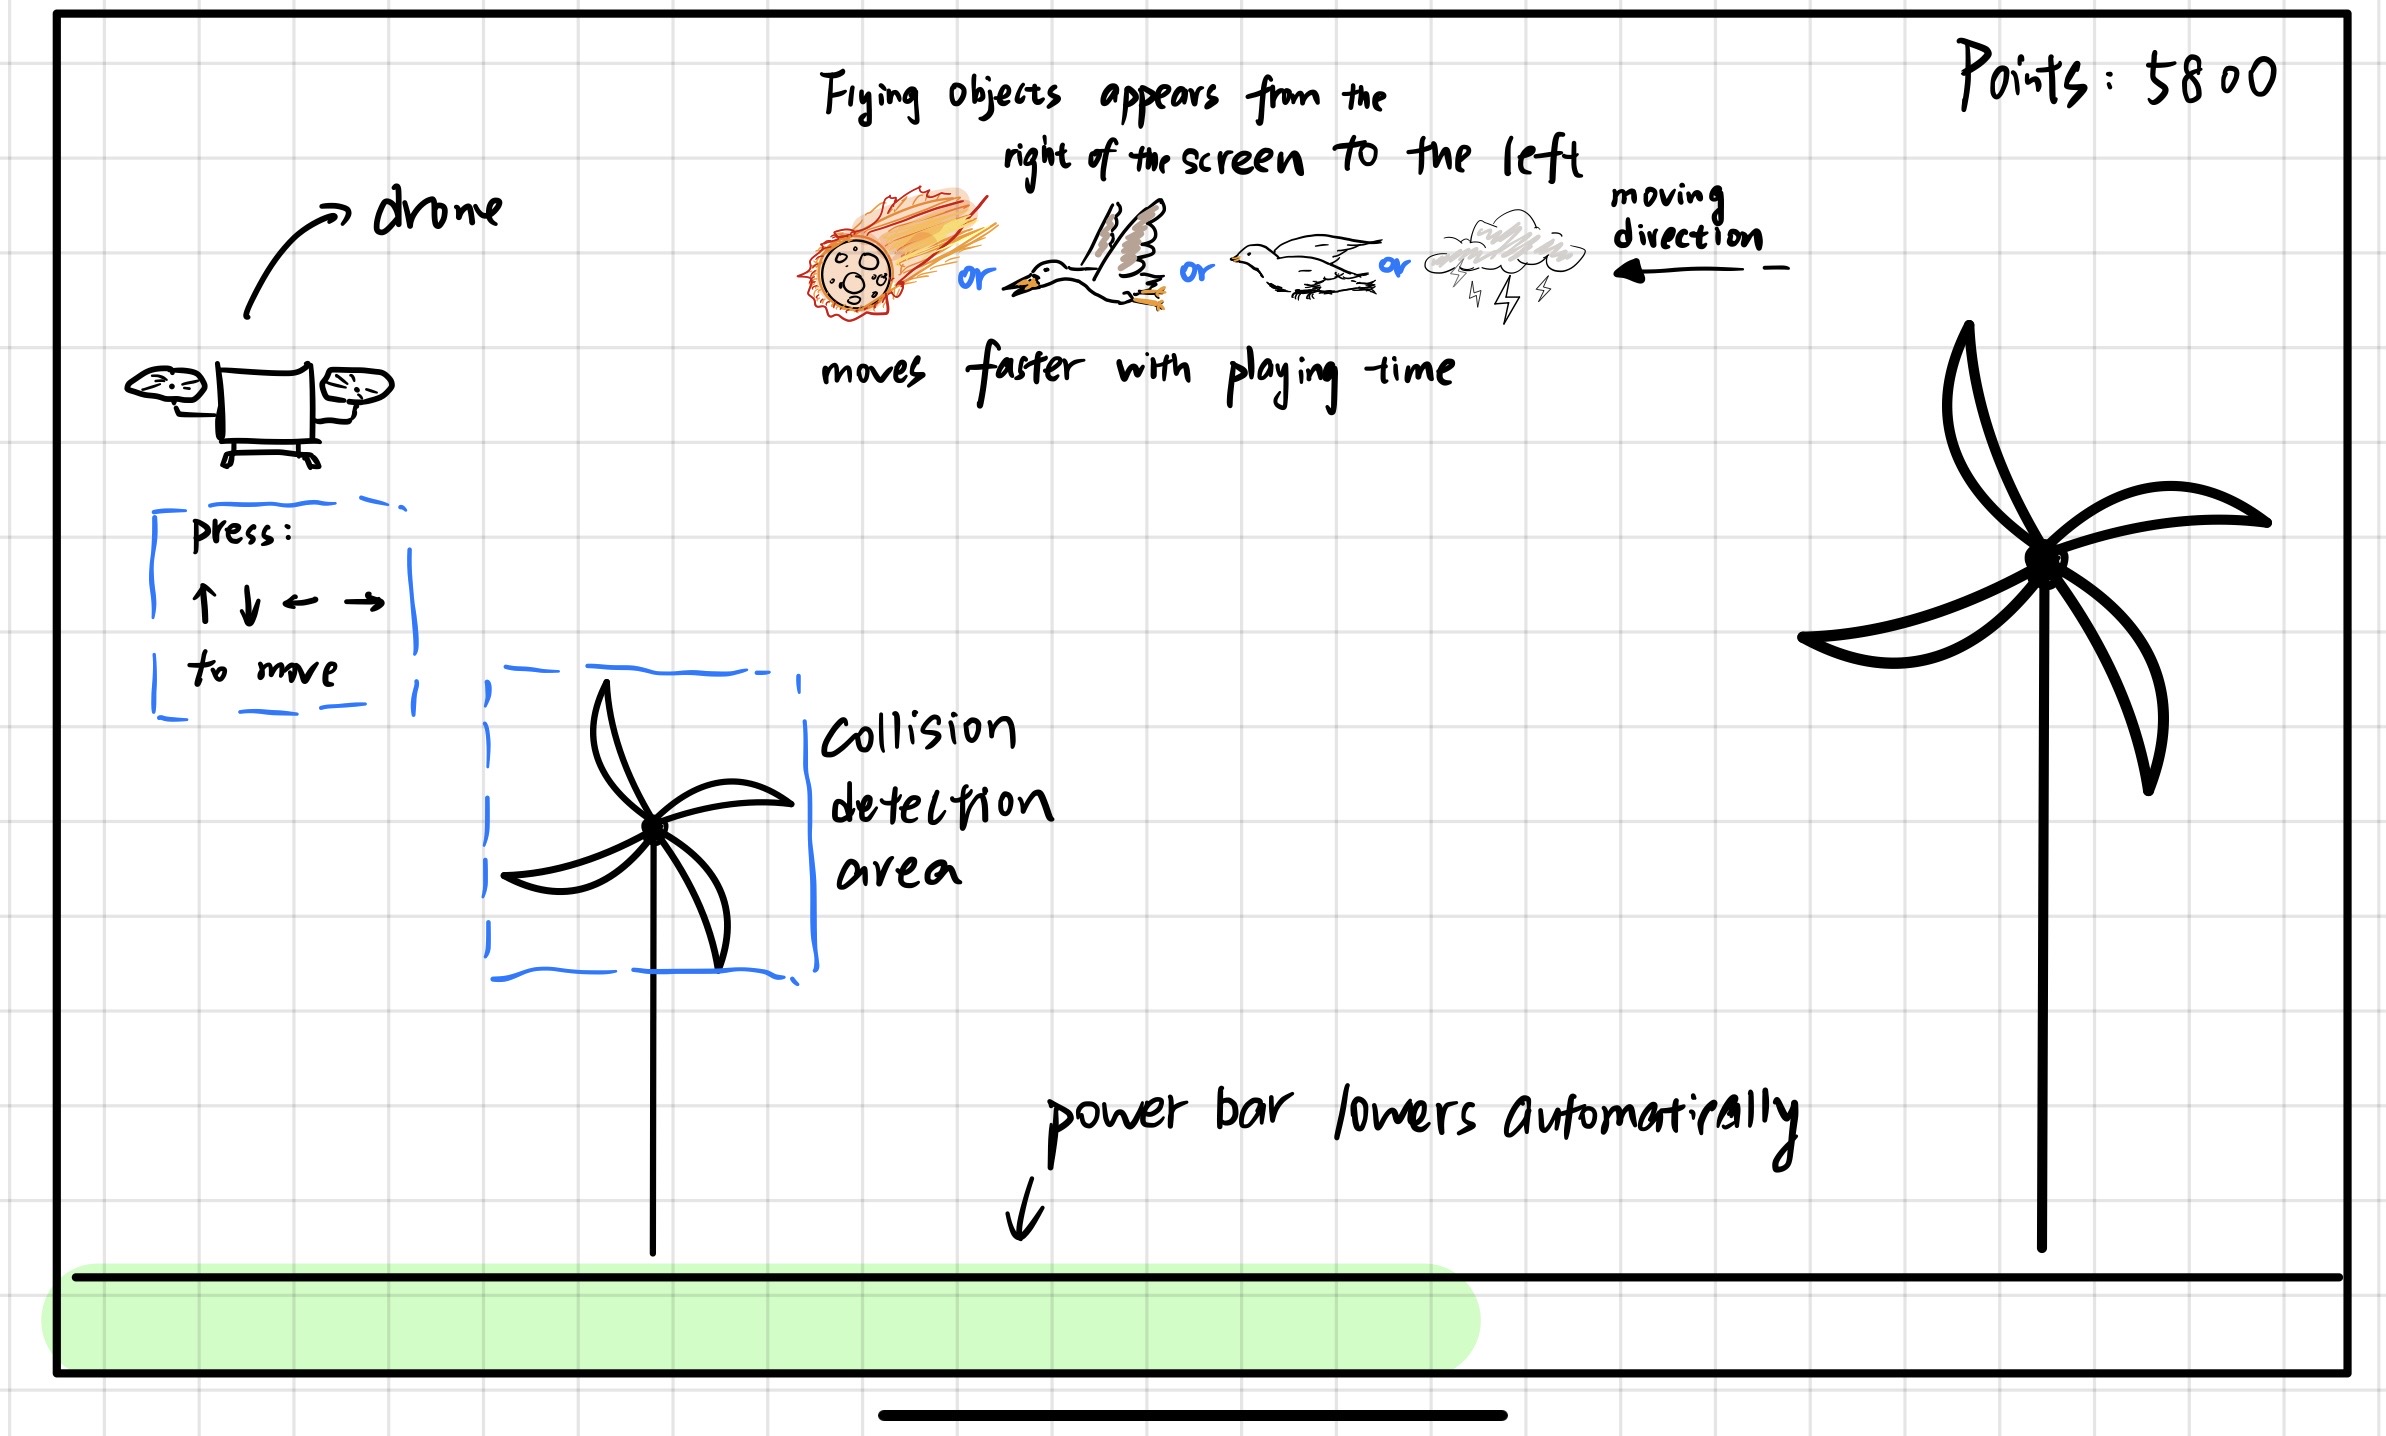 Points: 5800
Flying objects appears from the
right of the screen to the left
moving
direction
drone
or or or
moves faster with playing time
press:
↑ ↓ ← →
to move
Collision
detection
area
power bar lowers automatically